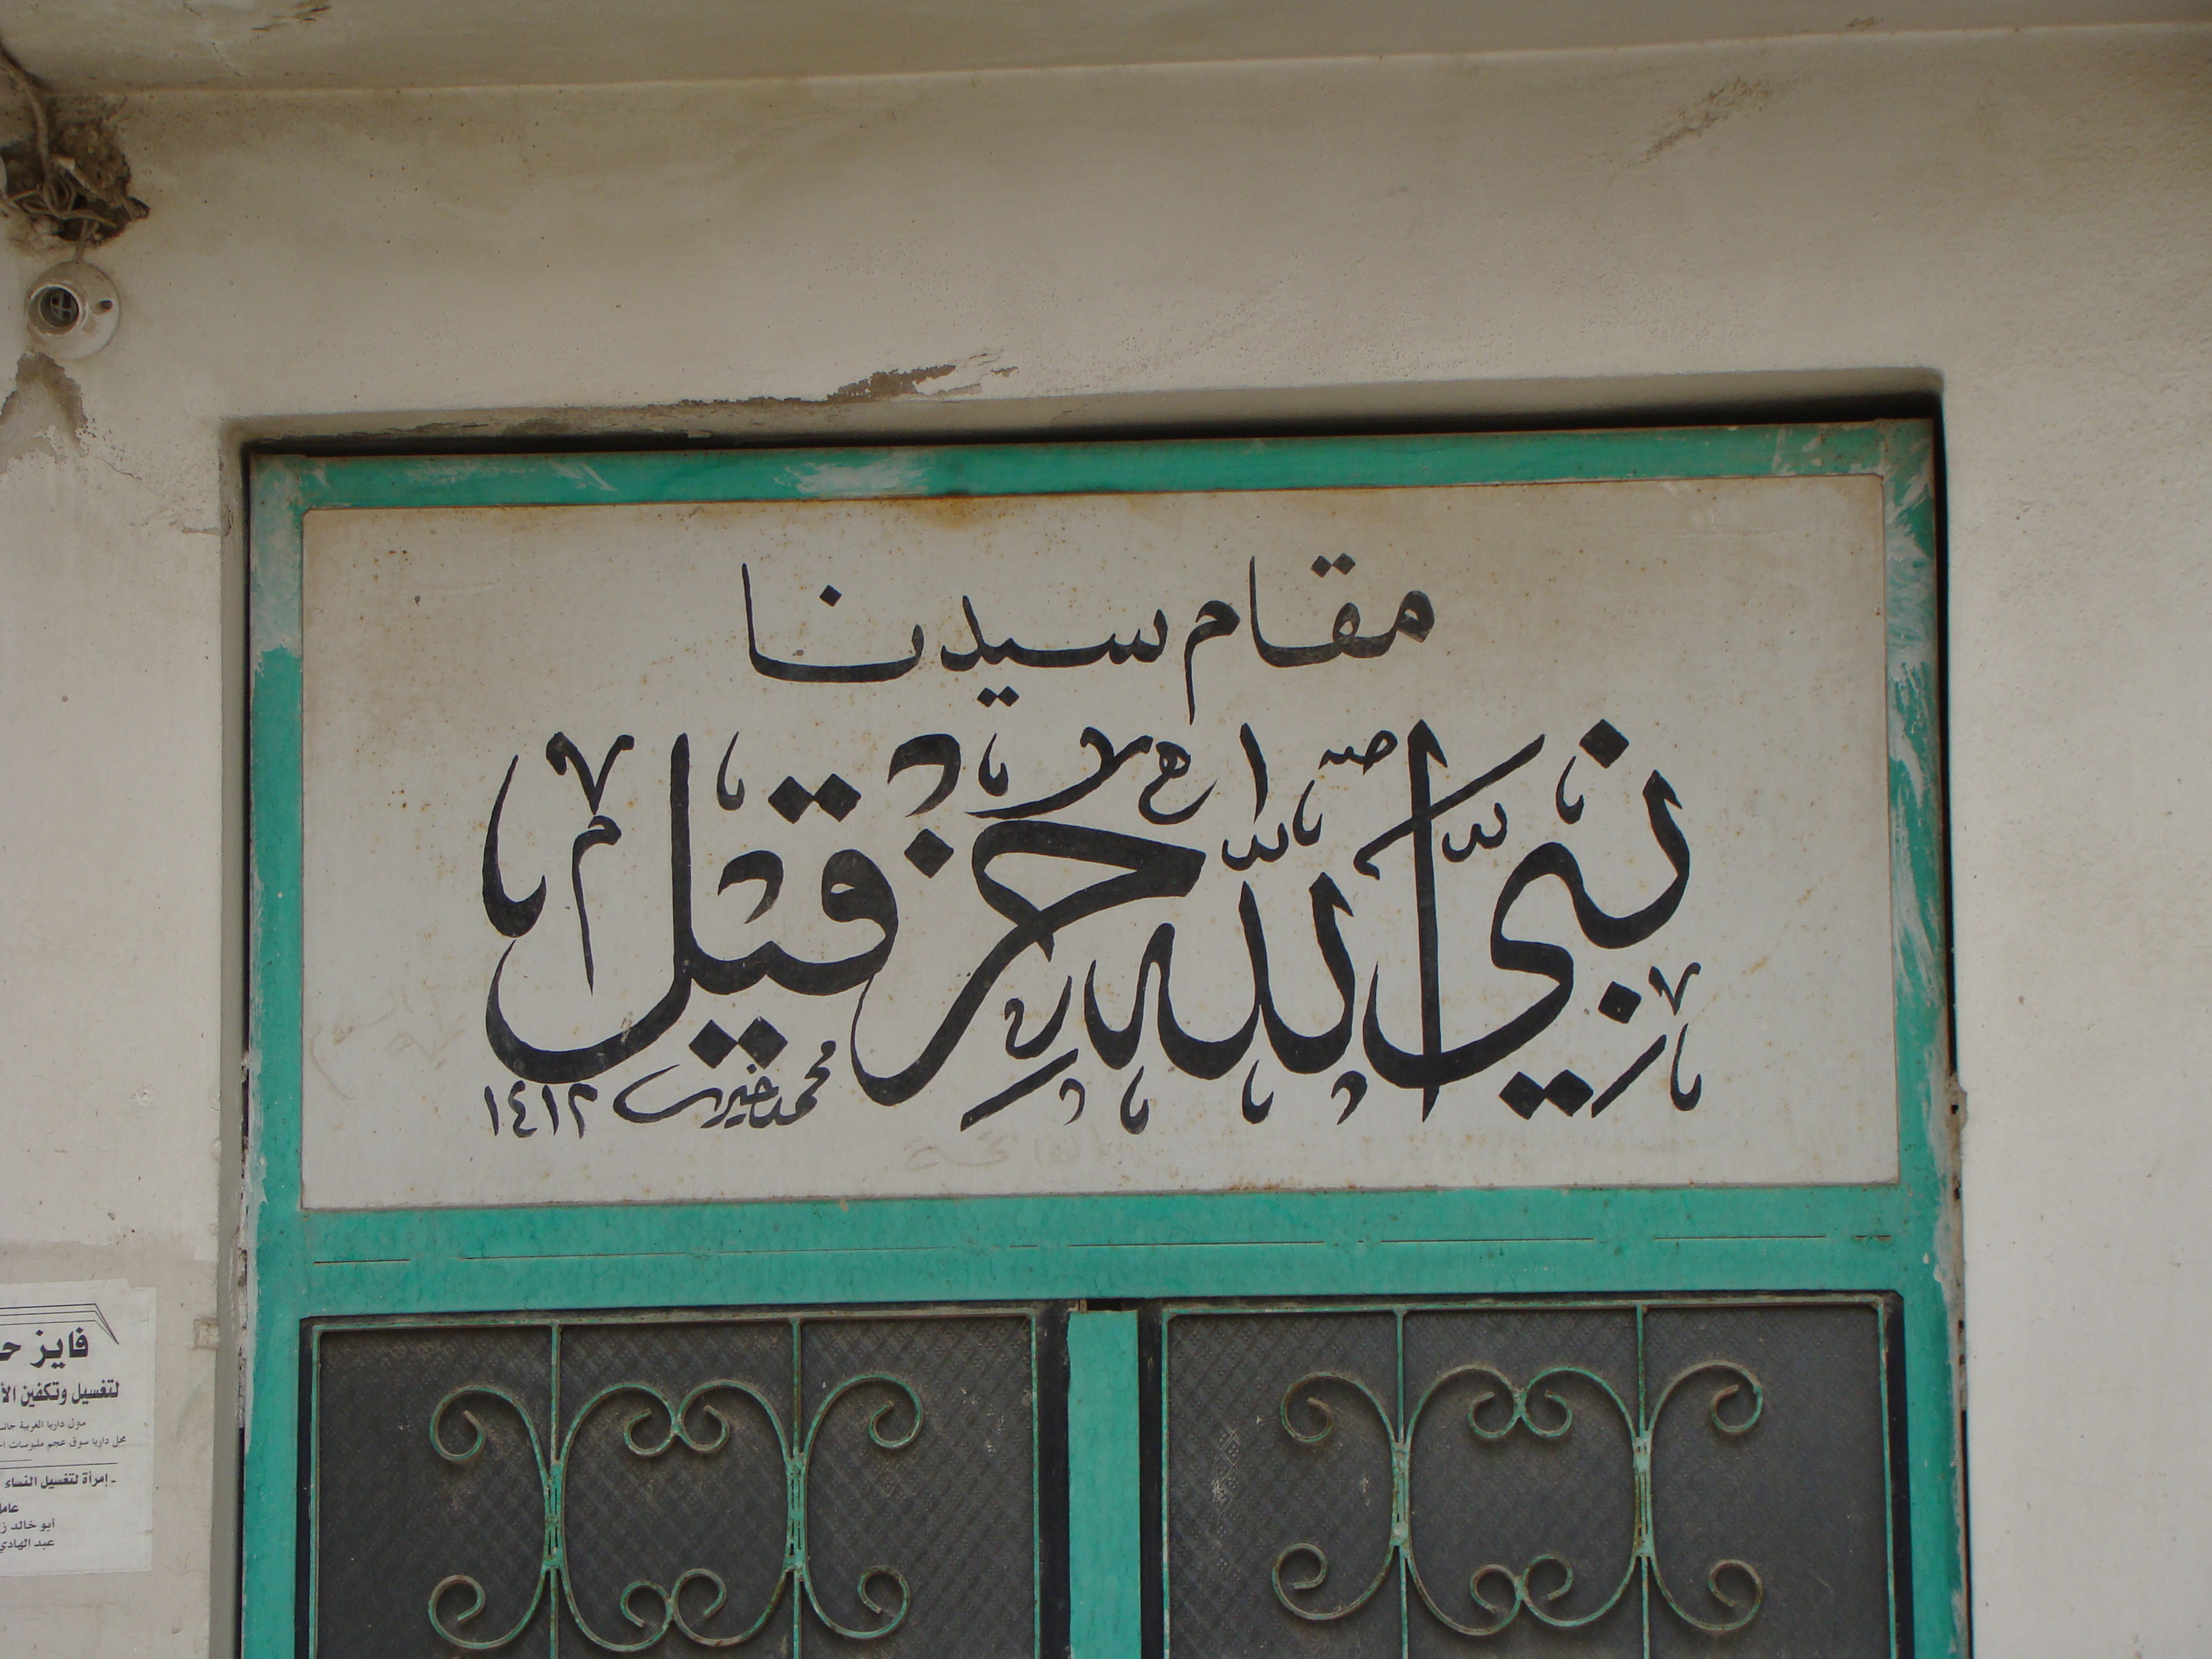 مقام سيدنا
نبيّ الله حزقيل
محمد خير ١٤١٢
فايز
لتغسيل وتكفين
داريا الغربية
محل داريا سوق عجم ملبوسات
- إمرأة لتغسيل النساء
أبو خالد
عبد الهادي